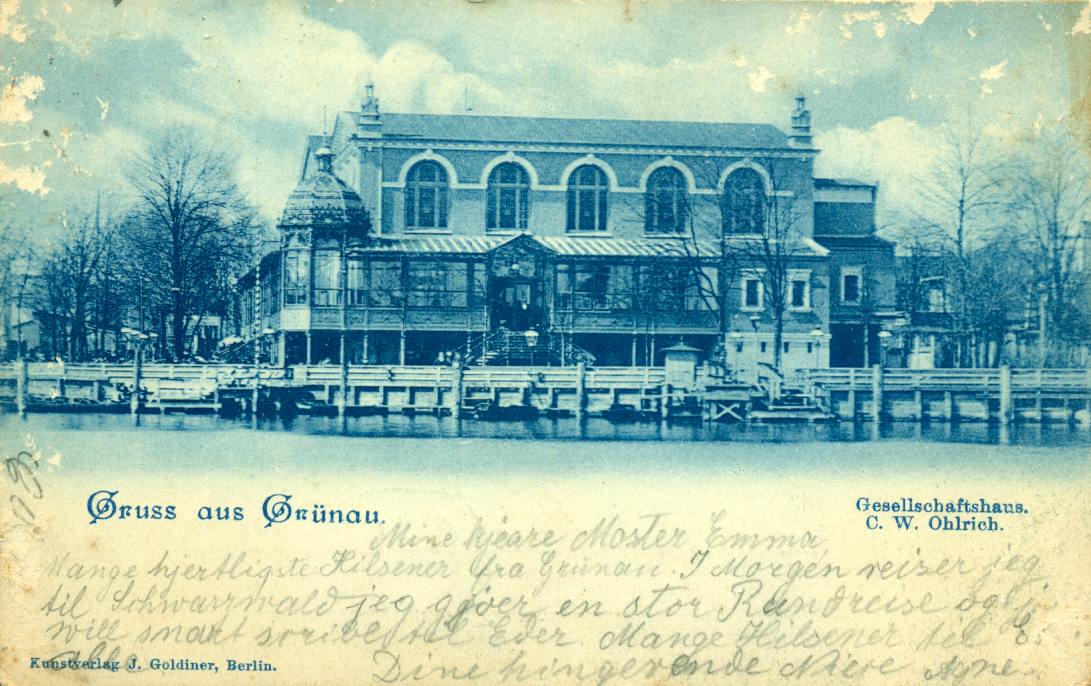 Gruss aus Grünau.
Gesellschaftshaus.
C. W. Ohlrich.
Mine kjeare Moster Emma,
Mange hjertligste Hilsener fra Grünau. I Morgen reiser jeg
til Schwarzwald jeg gjöer en stor Rundreise og
will snart scrive til Eder Mange Hilsener til E
alle
Dine hengevende Niece Agne
Kunstverlag J. Goldiner, Berlin.